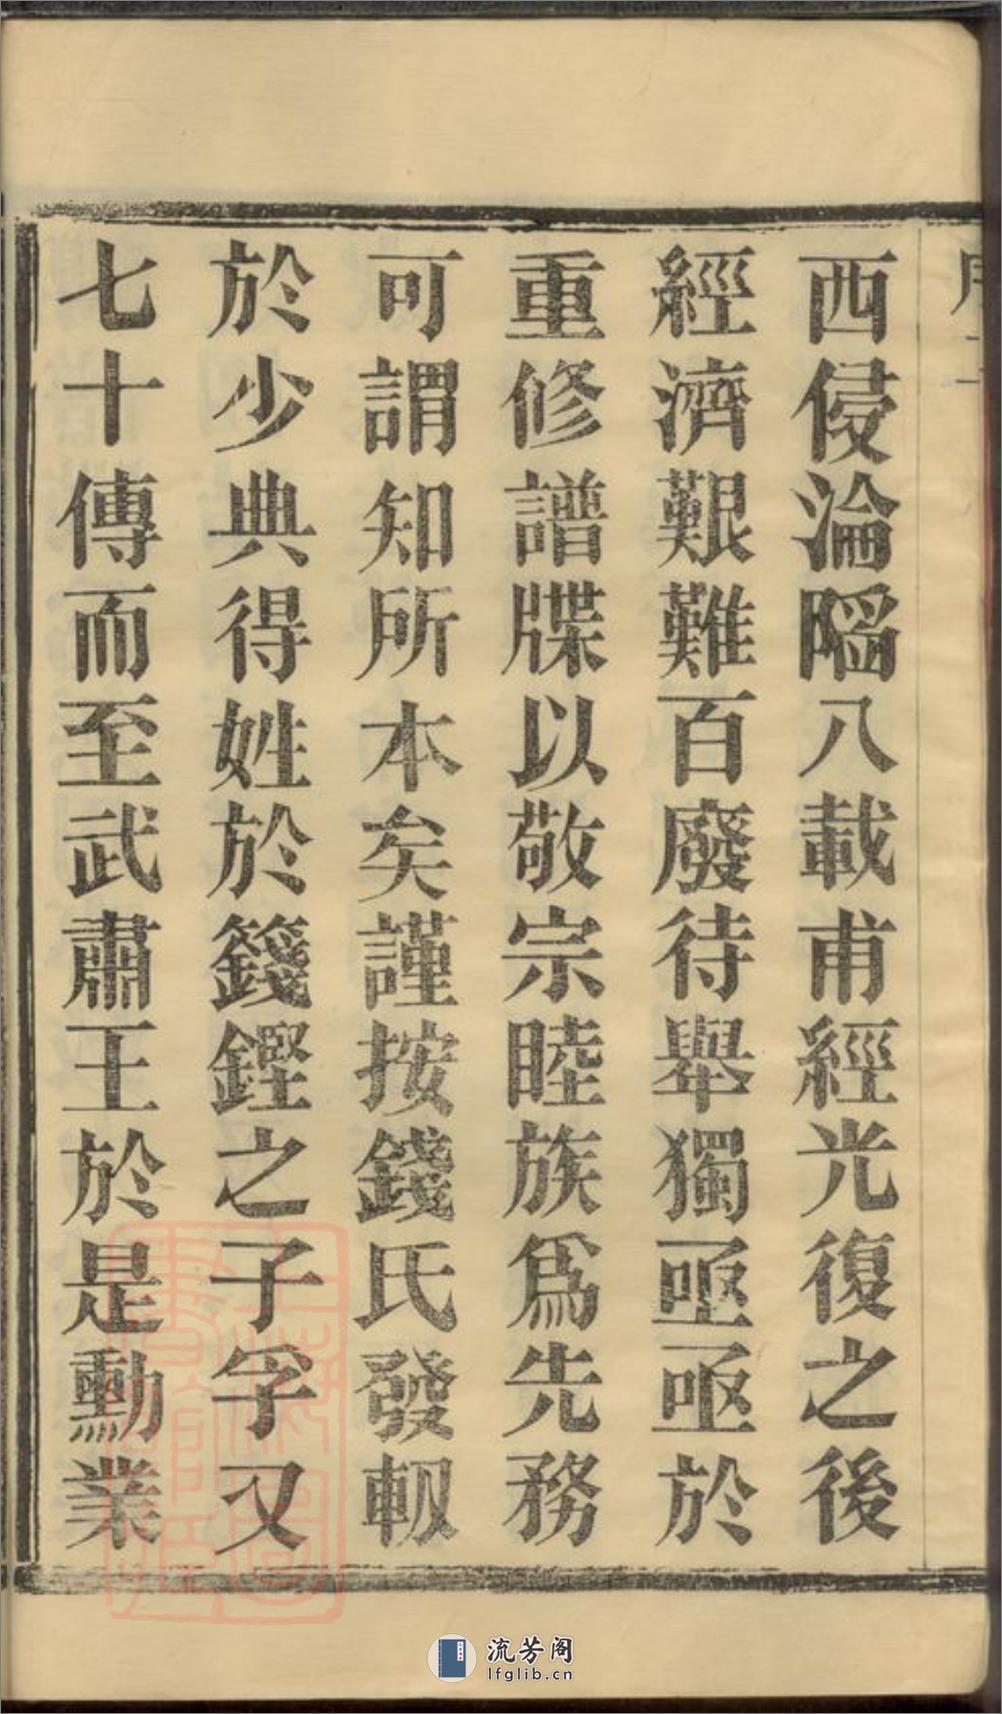 西侵淪陷八載甫經光復之後
經濟艱難百廢待舉獨亟亟於
重修譜牒以敬宗睦族爲先務
可謂知所本矣謹按錢氏發軔
於少典得姓於籛鏗之子孚又
七十傳而至武肅王於是勳業
流芳阁
lfglib.cn